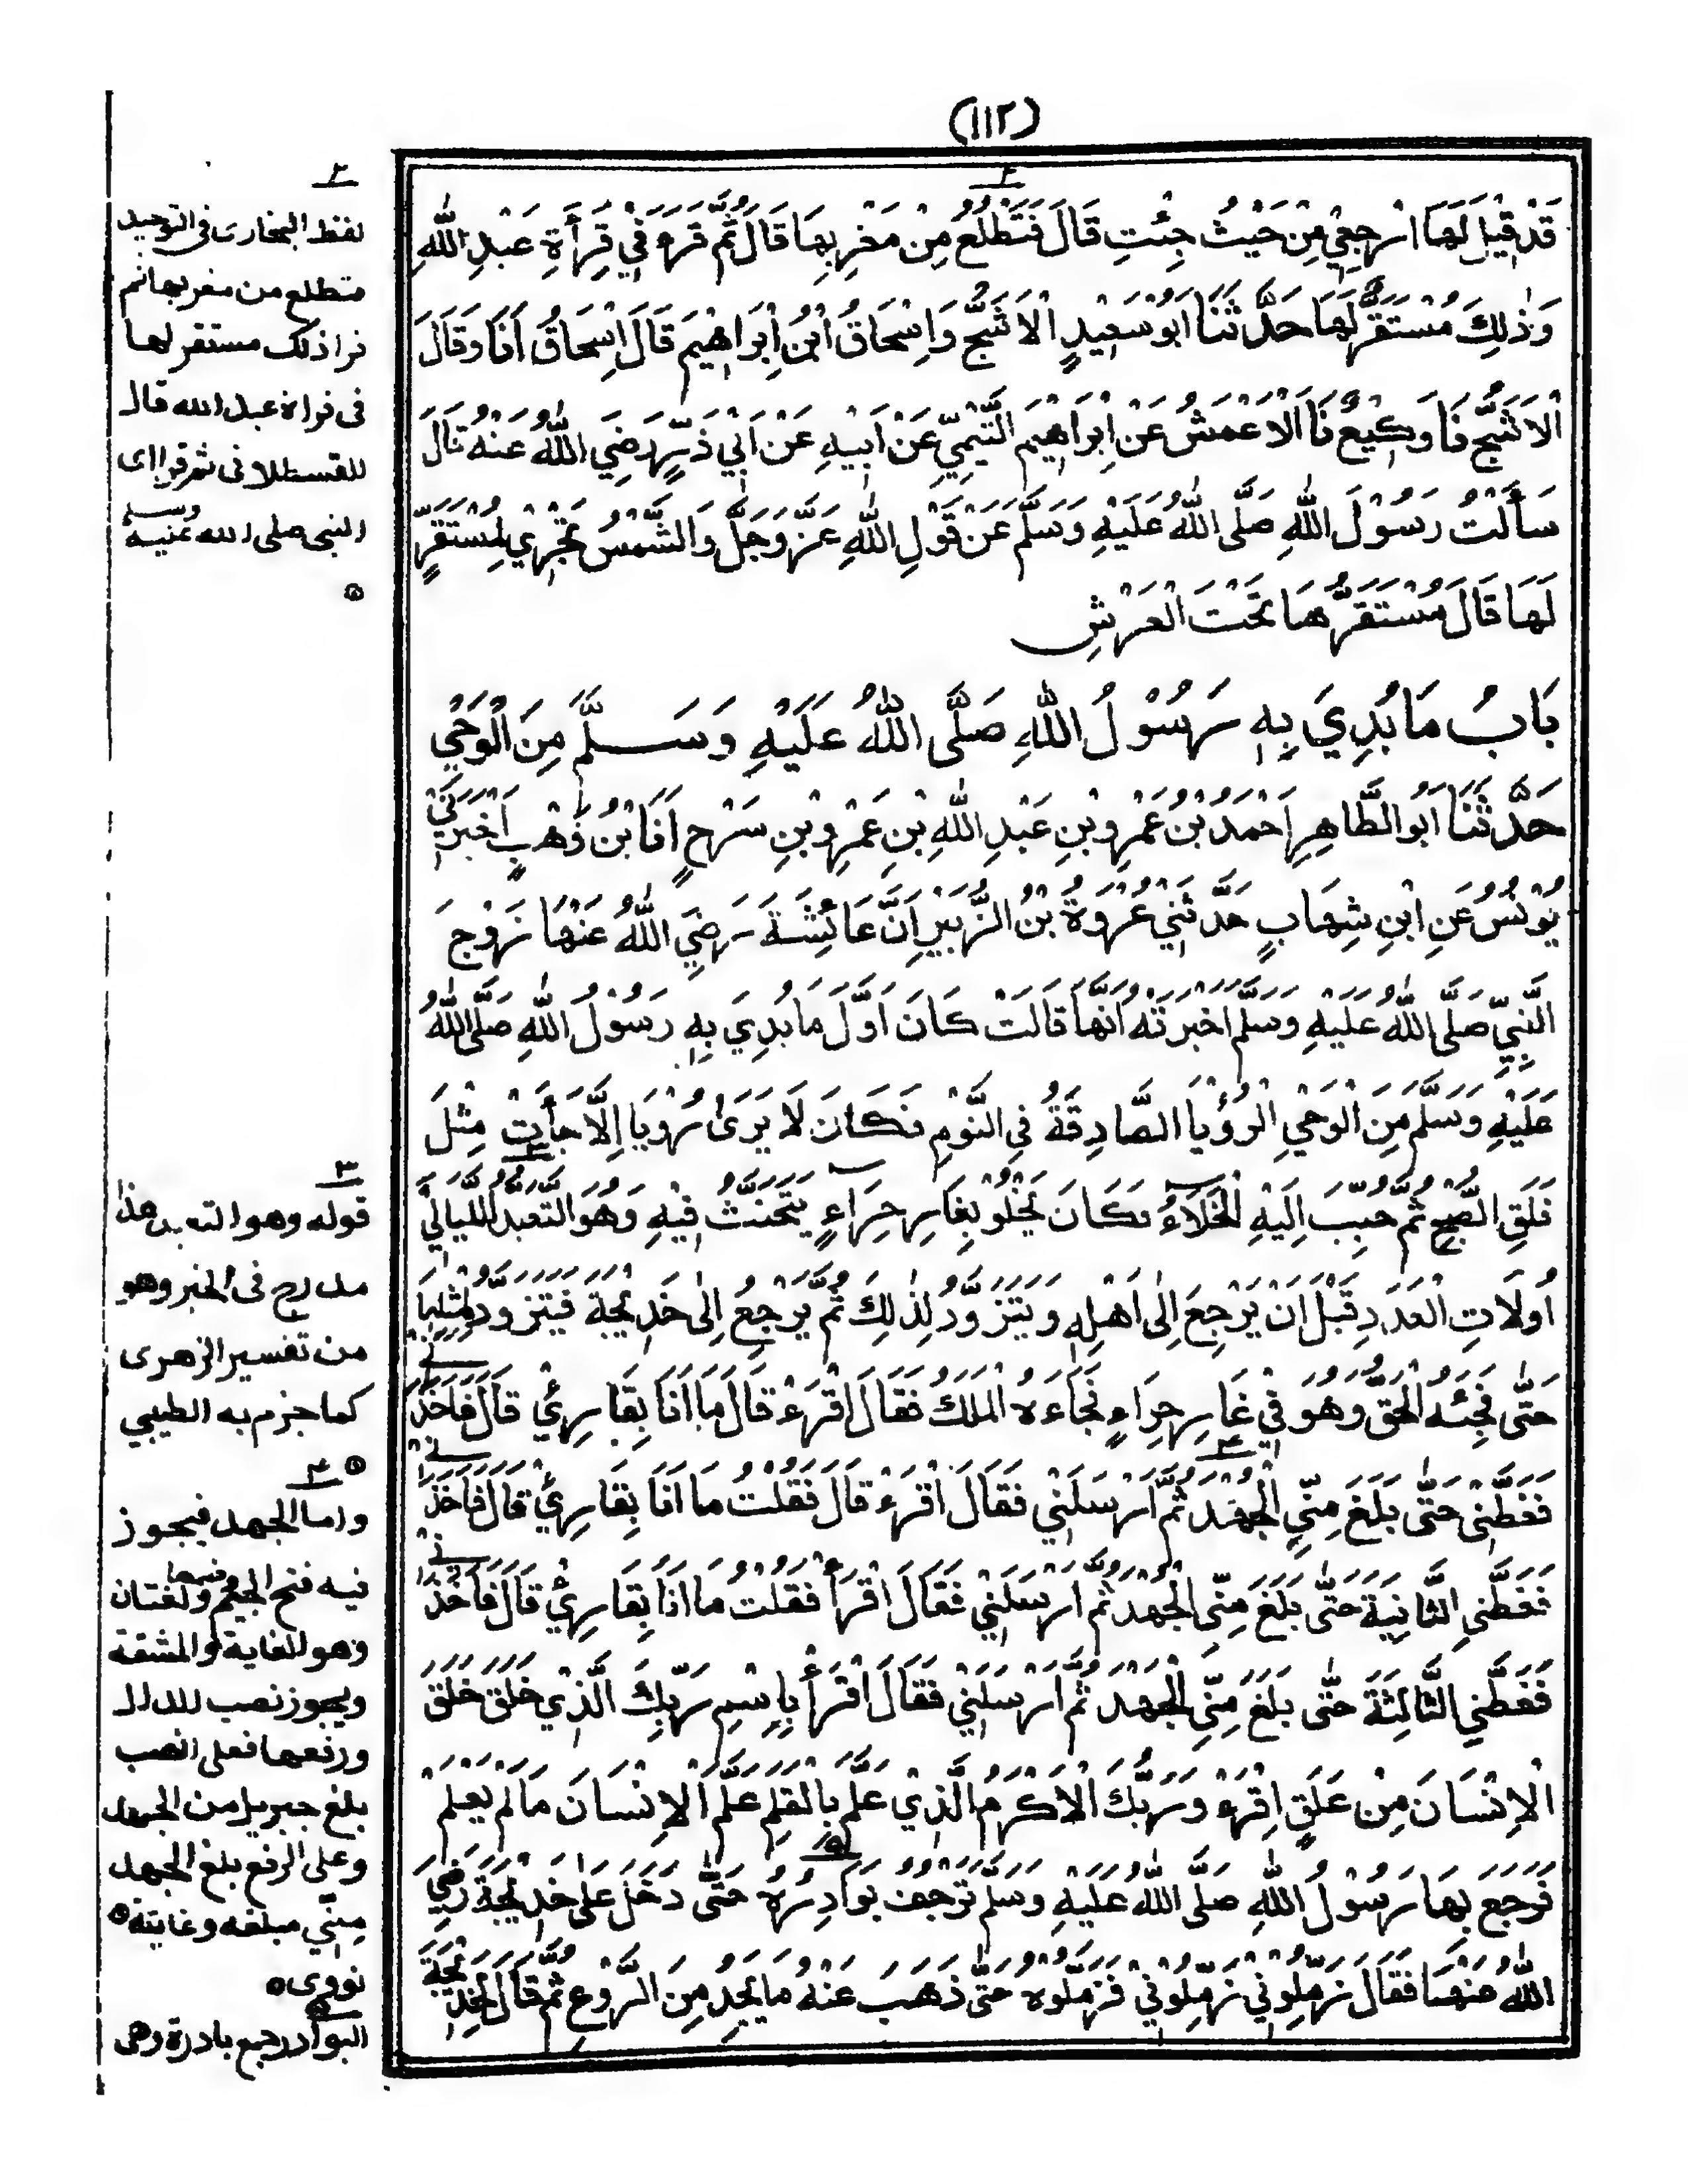 (١١٢)
قَدْ قِيْلَ لَهَا ارْجِعِيْ مِنْ حَيْثُ جِئْتِ قَالَ فَتَطْلُعُ مِنْ مَغْرِبِهَا قَالَ ثُمَّ قَرَءَ فِيْ قِرَأَةِ عَبْدِ اللّٰهِ
وَذٰلِكَ مُسْتَقَرٌّ لَهَا حَدَّثَنَا اَبُوْ سَعِيْدٍ الْاَشَجُّ وَاِسْحَاقُ ابْنُ اِبْرَاهِيْمَ قَالَ اِسْحَاقُ اَنَا وَقَالَ
الْاَشَجُّ نَا وَكِيْعٌ نَا الْاَعْمَشُ عَنْ اِبْرَاهِيْمَ التَّيْمِيِّ عَنْ اَبِيْهِ عَنْ اَبِيْ ذَرٍّ رَضِيَ اللّٰهُ عَنْهُ قَالَ
سَأَلْتُ رَسُوْلَ اللّٰهِ صَلَّى اللّٰهُ عَلَيْهِ وَسَلَّمَ عَنْ قَوْلِ اللّٰهِ عَزَّ وَجَلَّ وَالشَّمْسُ تَجْرِيْ لِمُسْتَقَرٍّ
لَهَا قَالَ مُسْتَقَرُّهَا تَحْتَ الْعَرْشِ
بَابُ مَا بُدِيَ بِهِ رَسُوْلُ اللّٰهِ صَلَّى اللّٰهُ عَلَيْهِ وَسَلَّمَ مِنَ الْوَحْيِ
حَدَّثَنَا اَبُو الطَّاهِرِ اَحْمَدُ بْنُ عَمْرِو بْنِ عَبْدِ اللّٰهِ بْنِ عَمْرِو بْنِ سَرْحٍ اَنَا بْنُ وَهْبٍ اَخْبَرَنِيْ
يُوْنُسُ عَنِ ابْنِ شِهَابٍ حَدَّثَنِيْ عُرْوَةُ بْنُ الزُّبَيْرِ اَنَّ عَائِشَةَ رَضِيَ اللّٰهُ عَنْهَا زَوْجَ
النَّبِيِّ صَلَّى اللّٰهُ عَلَيْهِ وَسَلَّمَ اَخْبَرَتْهُ اَنَّهَا قَالَتْ كَانَ اَوَّلَ مَا بُدِيَ بِهِ رَسُوْلُ اللّٰهِ صَلَّى اللّٰهُ
عَلَيْهِ وَسَلَّمَ مِنَ الْوَحْيِ الرُّؤْيَا الصَّادِقَةُ فِي النَّوْمِ فَكَانَ لَا يَرَىٰ رُوْيَا اِلَّا جَأَتْ مِثْلَ
فَلَقِ الصُّبْحِ ثُمَّ حُبِّبَ اِلَيْهِ الْخَلَاءُ فَكَانَ يَخْلُوْ بِغَارِ حِرَاءٍ يَتَحَنَّثُ فِيْهِ وَهُوَ التَّعَبُّدُ اللَّيَالِيْ
اُولَاتِ الْعَدَدِ قَبْلَ اَنْ يَرْجِعَ اِلٰى اَهْلِهِ وَيَتَزَوَّدُ لِذٰلِكَ ثُمَّ يَرْجِعُ اِلٰى خَدِيْجَةَ فَيَتَزَوَّدُ لِمِثْلِهَا
حَتّٰى فَجِئَهُ الْحَقُّ وَهُوَ فِيْ غَارِ حِرَاءٍ فَجَاءَهُ الْمَلَكُ فَقَالَ اقْرَءْ قَالَ مَا اَنَا بِقَارِئٍ قَالَ فَاَخَذَنِيْ
فَغَطَّنِيْ حَتّٰى بَلَغَ مِنِّي الْجُهْدَ ثُمَّ اَرْسَلَنِيْ فَقَالَ اقْرَءْ قَالَ فَقُلْتُ مَا اَنَا بِقَارِئٍ قَالَ فَاَخَذَنِيْ
فَغَطَّنِي الثَّانِيَةَ حَتّٰى بَلَغَ مِنِّي الْجُهْدَ ثُمَّ اَرْسَلَنِيْ فَقَالَ اقْرَأْ فَقُلْتُ مَا اَنَا بِقَارِئٍ قَالَ فَاَخَذَنِيْ
فَغَطَّنِي الثَّالِثَةَ حَتّٰى بَلَغَ مِنِّي الْجُهْدَ ثُمَّ اَرْسَلَنِيْ فَقَالَ اقْرَأْ بِاسْمِ رَبِّكَ الَّذِيْ خَلَقَ خَلَقَ
الْاِنْسَانَ مِنْ عَلَقٍ اِقْرَءْ وَرَبُّكَ الْاَكْرَمُ الَّذِيْ عَلَّمَ بِالْقَلَمِ عَلَّمَ الْاِنْسَانَ مَا لَمْ يَعْلَمْ
فَرَجَعَ بِهَا رَسُوْلُ اللّٰهِ صَلَّى اللّٰهُ عَلَيْهِ وَسَلَّمَ تَرْجُفُ بَوَادِرُهُ حَتّٰى دَخَلَ عَلٰى خَدِيْجَةَ رَضِيَ
اللّٰهُ عَنْهَا فَقَالَ زَمِّلُوْنِيْ زَمِّلُوْنِيْ فَزَمَّلُوْهُ حَتّٰى ذَهَبَ عَنْهُ مَا يَجِدُ مِنَ الرَّوْعِ ثُمَّ قَالَ لِخَدِيْجَةَ
٢
لفظ البخارى فى التوحيد
فتطلع من مغربها ثم
قرا ذلك مستقر لها
فى قراة عبد الله قال
القسطلانى ثم قرا اى
النبى صلى الله عليه وسلم
٣
قوله وهو التعبد هذا
مدرج فى الخبر وهو
من تفسير الزهرى
كما جزم به الطيبي
٤
واما الجهد فيجوز
فيه فتح الجيم وضمها لغتان
وهو الغاية والمشقة
ويجوز نصب الدال
ورفعها فعلى النصب
بلغ جبريل من الجهد
وعلى الرفع بلغ الجهد
مِنّي مبلغه وغايته
نووى
البوادر جمع بادرة وهى